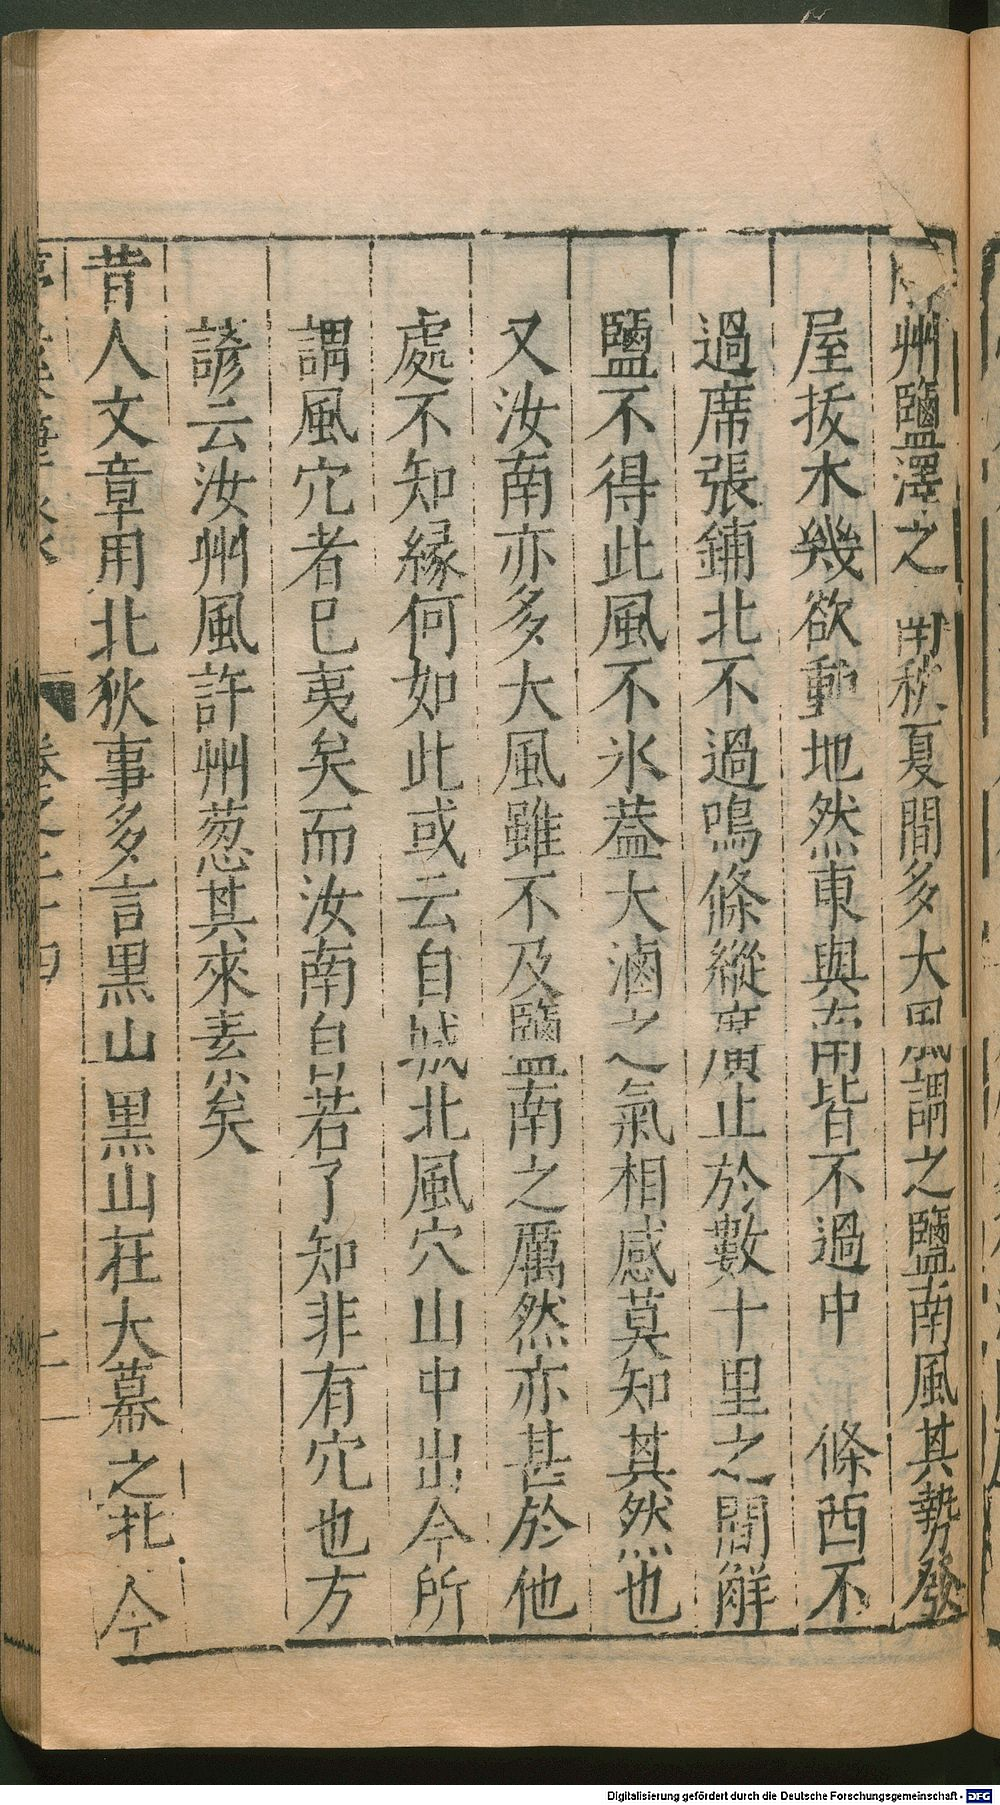 州鹽澤之南秋夏間多大風謂之鹽南風其勢發
屋拔木幾欲動地然東與南皆不過中條西不
過席張鋪北不過鳴條縱廣止於數十里之間解
鹽不得此風不氷葢大滷之氣相感莫知其然也
又汝南亦多大風雖不及鹽南之厲然亦甚於他
處不知緣何如此或云自城北風穴山中出今所
謂風穴者已夷矣而汝南自若了知非有穴也方
諺云汝州風許州葱其來素矣
昔人文章用北狄事多言黑山黑山在大幕之北今
卷之二十四
Digitalisierung gefördert durch die Deutsche Forschungsgemeinschaft - DFG